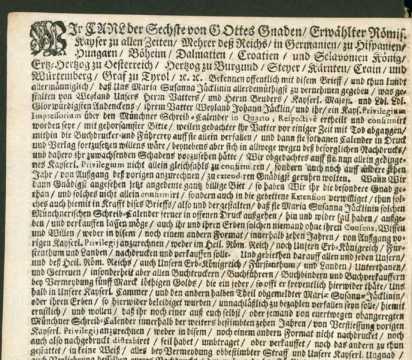 WIr CARL der Sechste von GOttes Gnaden / Erwählter Römis.
Kayser zu allen Zeiten / Mehrer deß Reichs / in Germanien / zu Hispanien /
Hungarn / Böheim / Dalmatien / Croatien / und Sclavonien König /
Ertz-Hertzog zu Oesterreich / Hertzog zu Burgund / Steyer / Kärnten / Crain / und
Würtemberg / Graf zu Tyrol / ꝛc. ꝛc. Bekennen offentlich mit disem Brieff / und thun kundt
allermänniglich / daß Uns Maria Susanna Jücklinin allerdemütigst zu vernehmen gegeben / was ge-
stalten von Weyland Unsern Herrn Vattern / und Herrn Brudern / Kayserl. Mayst. und Ld. Ld.
Glorwürdigisten Andenckens / ihrem Vatter Weyland Johann Jücklin / und ihr / ein Kays. Privilegium
Impressorium über den Münchner Schreib-Calender in Quarto, Respectivè ertheilt und confirmirt
worden seye / mit gehorsamster Bitte / weilen gedachter ihr Vatter vor einiger Zeit mit Tod abgangen /
mithin die Buchdrucker- und Führerey auff sie allein verfallen / und dann sie sothanen Calender in Druck
und Verlag fortzusetzen willens wäre / beynebens aber sich in allwege wegen deß besorglichen Nachdrucks /
und dahero ihr zuwachsenden Schadens vorzusehen hätte / Wir obgedachtes auff sie nun allein gedigene-
nes Kayserl. Privilegium nicht allein gleichfalls zu confirmiren / sondern auch noch auff andere zehen
Jahr / von Außgang deß vorigen anzurechnen / zu extendiren Gnädigst geruhen wolten. Wann Wir
dann Gnädigst angesehen jetzt angedeute gantz billige Bitt / so haben Wir ihr die besondere Gnad ge-
than / und solches nicht allein confirmirt / sondern auch in die gebettene Extension verwilliget / thun sol-
ches auch hiemit in Krafft dises Brieffs / also und dergestalten / daß sie Maria Susanna Jücklin solchen
Münchnerischen Schreib-Calender ferner in offenen Druck außgehen / hin und wider fail haben / außge-
ben / und verkauffen lassen möge / auch ihr und ihren Erben solchen niemand ohne ihren Consens, Wissen
und Willen / weder in disem / noch einem andern Format / innerhalb zehen Jahren / von Außgang vo-
rigen Kayserl. Privilegij anzurechnen / weder im Heil. Röm. Reich / noch Unsern Erb-Königreich / Für-
stenthum und Landen / nachdrucken und verkauffen solle. Und gebiethen darauff allen und jeden Unsern /
und deß Heil. Röm. Reichs / auch Unsern Erb-Königreich / Fürstenthum / und Landen / Unterthanen /
und Getreuen / insonderheit aber allen Buchdruckern / Buchführern / Buchbindern und Buchverkauffern
bey Vermeydung fünff Marck löthiges Golds / die ein jeder / so offt er freventlich hierwider thäte / Uns
halb in Unsere Kayserl. Cammer / und den andern halben Theil obgemelter Maria Susanna Jücklinin /
oder ihren Erben / so hierwider beleidiget wurden / unnachläßlich zu bezahlen verfallen seyn solle / hiemit
ernstlich / und wollen / daß ihr noch einer auß euch selbst / oder jemand von eurtwegen obangeregten
Münchner Schreib-Calender innerhalb der weiters bestimbten zehen Jahren / von Verfliessung vorigen
Kayserl. Privilegij anzurechnen / weder in disem / noch einem andern Format nicht nachdrucket / noch
auch also nachgedruckt distrahiret / feil habet / umtraget / oder verkauffet / noch das andern zu thun
gestattet / in keine Weiß / alles bey Vermeydung obbestimbter Straff und Unser Kayserl. Ungnad /